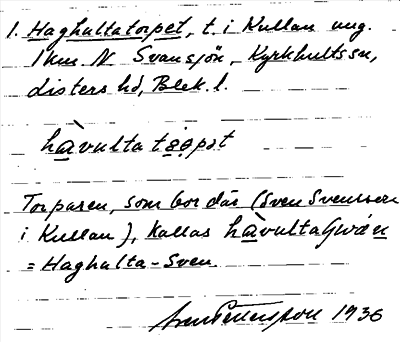 1. Haghultatorpet, t. i Kullan ung.
1 km. N Svansjön, Kyrkhults sn,
Listers hd, Blek. l.
hàvultatǫrpət
Torparen, som bor där (Sven Svensson
i Kullan), kallas hàvulta
= Haghulta-Sven.
1936